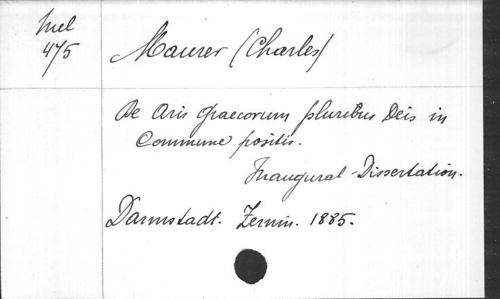 Mel
475
Maurer (Charles)
De Aris graecorum pluribus Deis in
Commune positis.
Inaugural-Dissertation.
Darmstadt. Zernin. 1885.